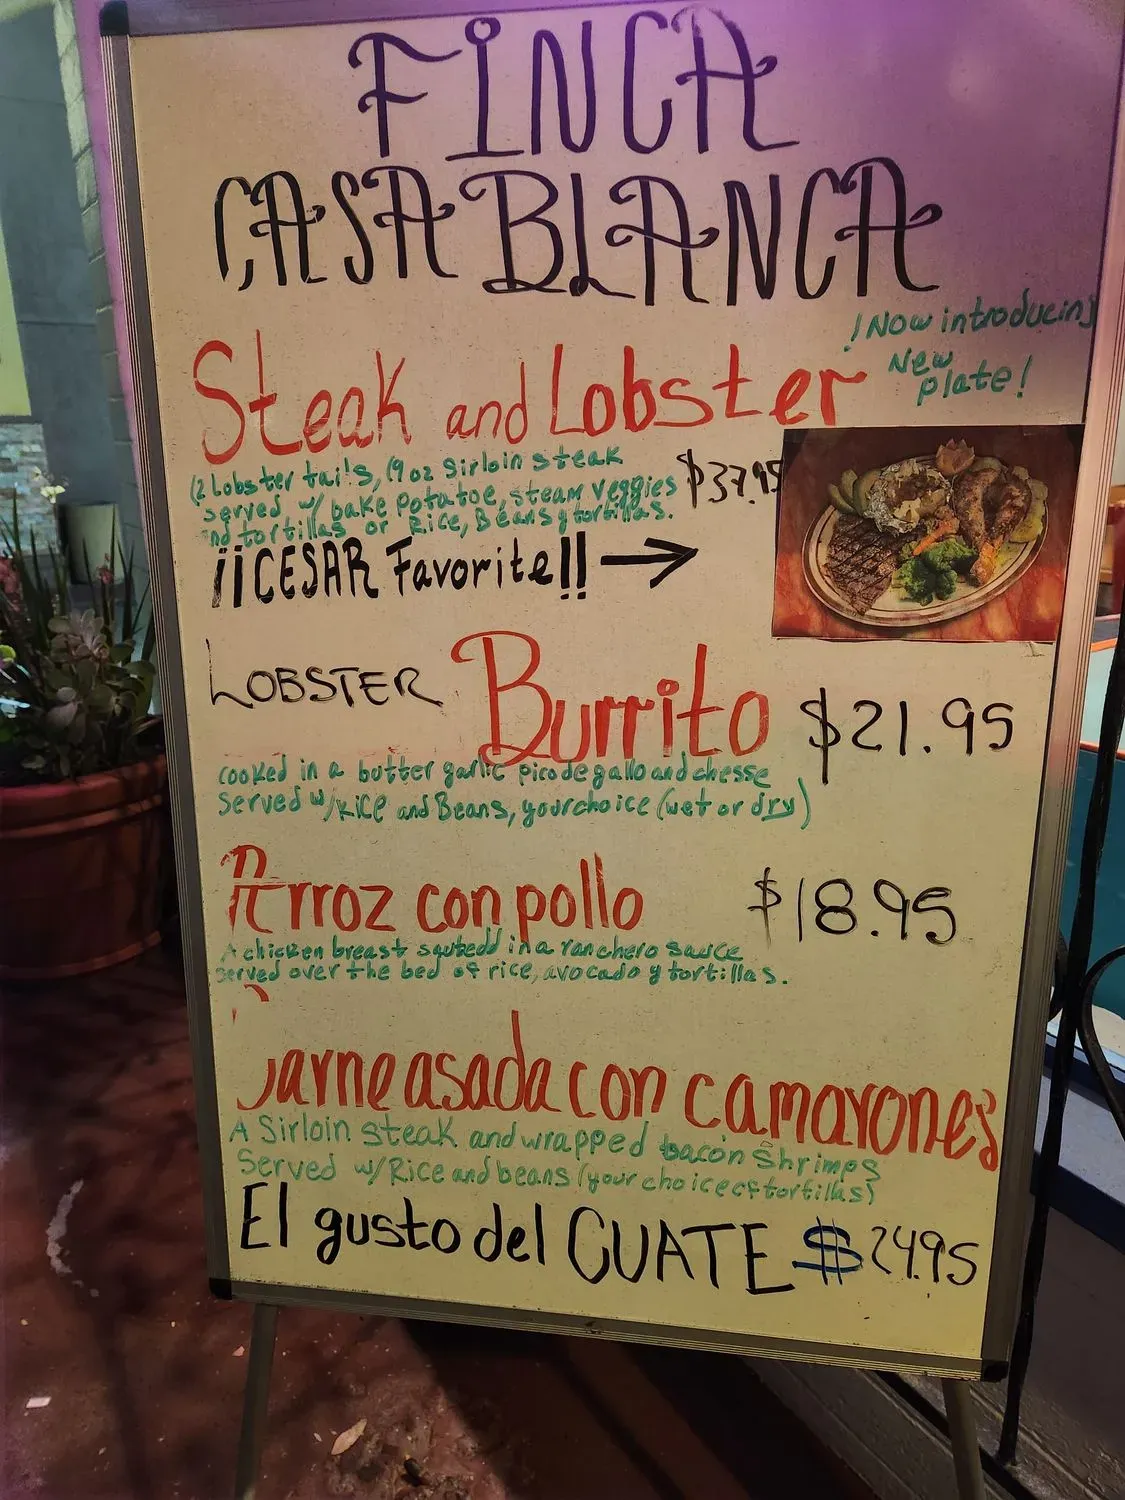 FINCA
CASA BLANCA
¡Now introducing
New
plate!
Steak and Lobster
(2 Lobster tails, (9 oz Sirloin steak
served w/ bake potatoe, steam veggies
nd tortillas or Rice, Beans y tortillas.
$37.95
¡¡CESAR Favorite!! →
LOBSTER Burrito $21.95
cooked in a butter garlic pico de gallo and chesse
Served w/Rice and Beans, your choice (wet or dry)
Arroz con pollo $18.95
A chicken breast sauteedd in a ranchero sauce
served over the bed of rice, avocado y tortillas.
Carne asada con camarones
A Sirloin steak and wrapped bacon shrimps
Served w/Rice and beans (your choice of tortillas)
El gusto del CUATE $24.95